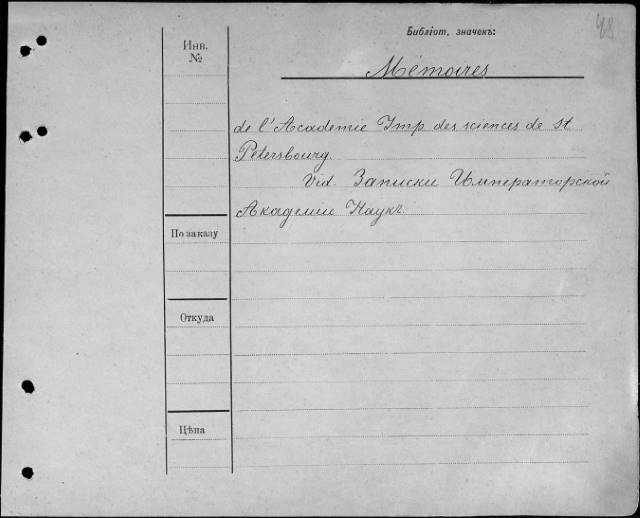 48
Библіот. значекъ:
Инв.
№
Mémoires
de l'Academie Imp des sciences de St
Petersbourg.
Vid. Записки Императорской
Академии Наукъ
По заказу
Откуда
Цѣна